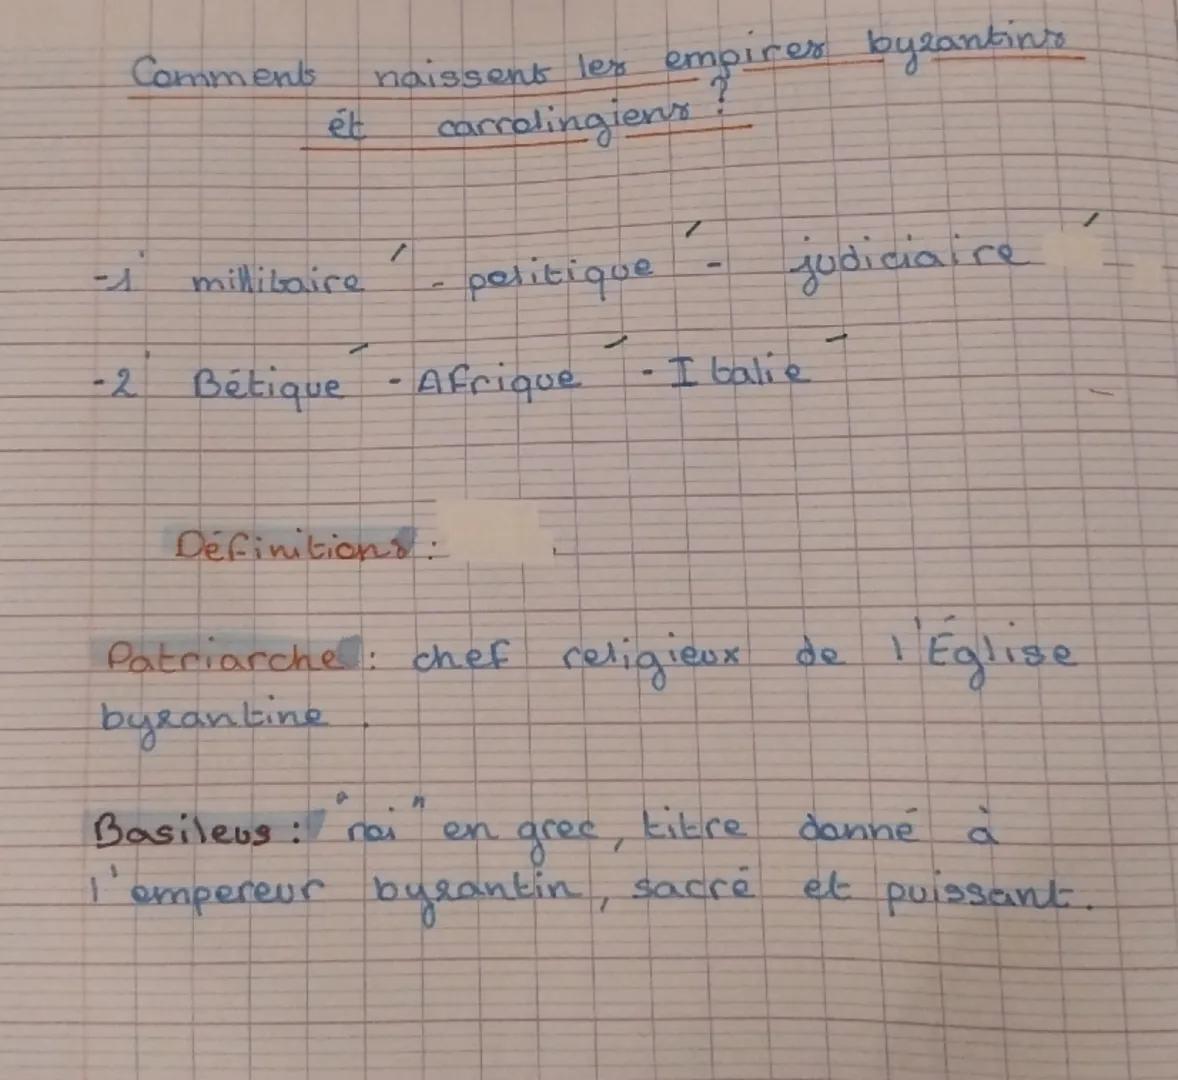 Comment naissent les empires byzantins
et carrolingiens ?
-1 millitaire - politique - judiciaire
-2 Bétique - Afrique - Italie
Définitions :
Patriarche : chef religieux de l'Église
byzantine.
Basileus : "roi" en grec, titre donné à
l'empereur byzantin, sacré et puissant.